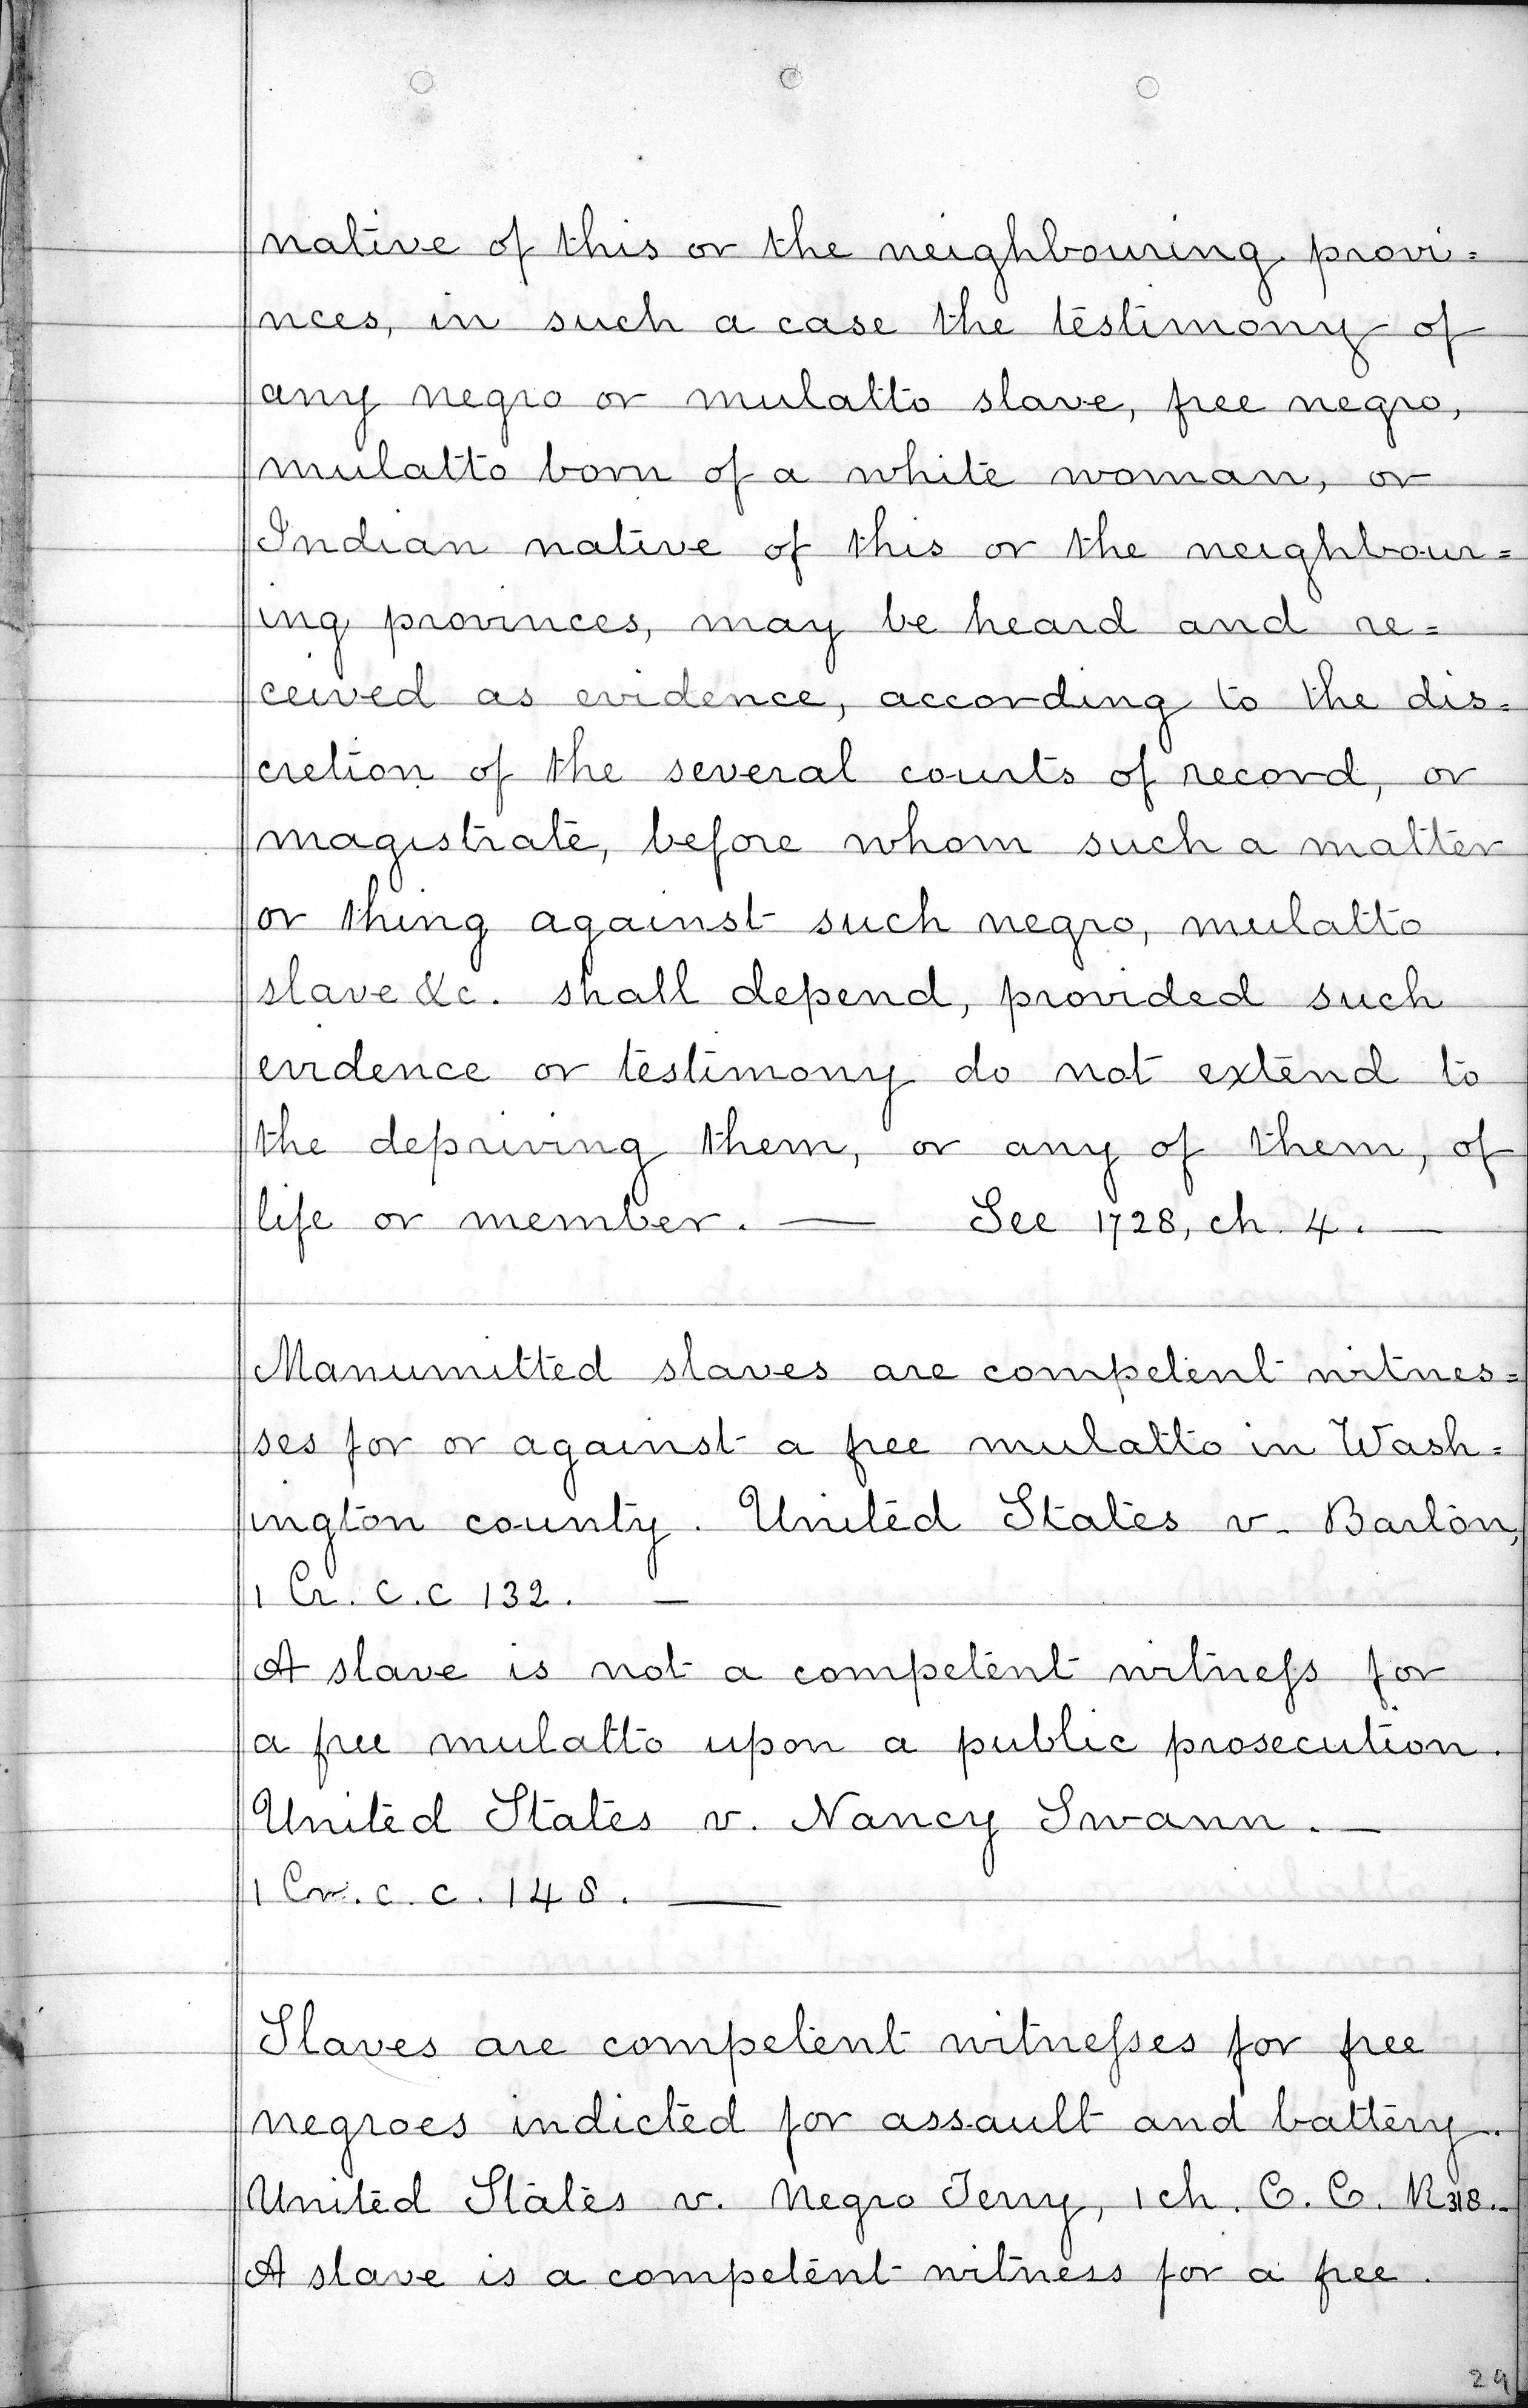 native of this or the neighbouring provi=
nces, in such a case the testimony of
any negro or mulatto slave, free negro,
mulatto born of a white woman, or
Indian native of this or the neighbour=
ing provinces, may be heard and re=
ceived as evidence, according to the dis=
cretion of the several courts of record, or
magistrate, before whom such a matter
or thing against such negro, mulatto
slave &c. shall depend, provided such
evidence or testimony do not extend to
the depriving them, or any of them, of
life or member. — See 1728, ch. 4. —
Manumitted slaves are competent witnes=
ses for or against a free mulatto in Wash=
ington county. United States v. Barton,
1 Cr. C.C 132. —
A slave is not a competent witneſs for
a free mulatto upon a public prosecution.
United States v. Nancy Swann. —
1 Cr. c. c. 148. —
Slaves are competent witneſses for free
negroes indicted for assault and battery.
United States v. Negro Terry, 1 ch. C. C. R 318. -
A slave is a competent witness for a free.
29